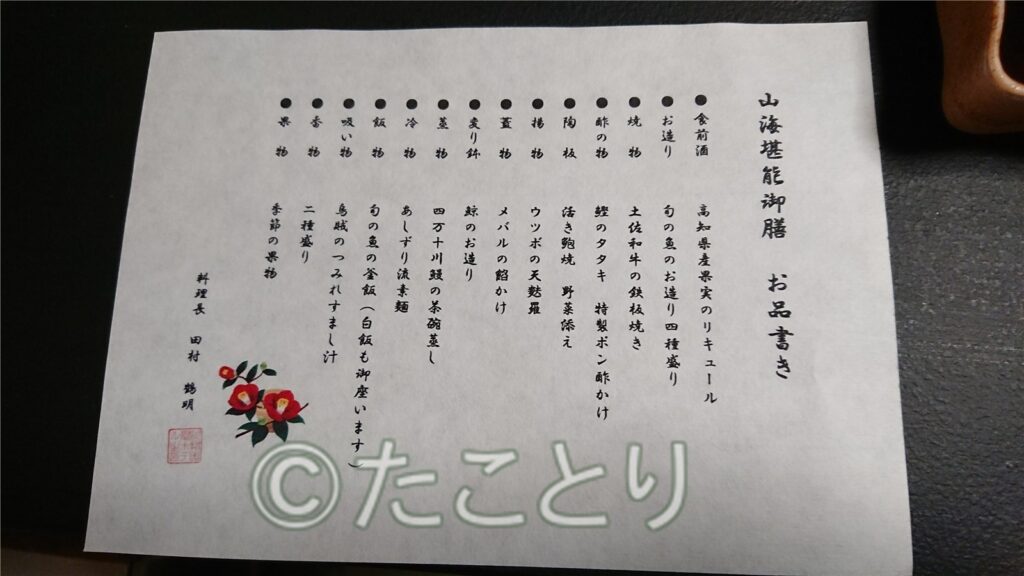 山海堪能御膳　お品書き
●食前酒　高知県産果実のリキュール
●お造り　旬の魚のお造り四種盛り
●焼　物　土佐和牛の鉄板焼き
●酢の物　鰹のタタキ　特製ポン酢かけ
●陶　板　活き鮑焼　野菜添え
●揚　物　ウツボの天麩羅
●蓋　物　メバルの餡かけ
●変り鉢　鯨のお造り
●蒸　物　四万十川鰻の茶碗蒸し
●冷　物　あしずり流素麺
●飯　物　旬の魚の釜飯（白飯も御座います）
●吸い物　烏賊のつみれすまし汁
●香　物　二種盛り
●果　物　季節の果物
料理長　田村　鶴明
©たことり